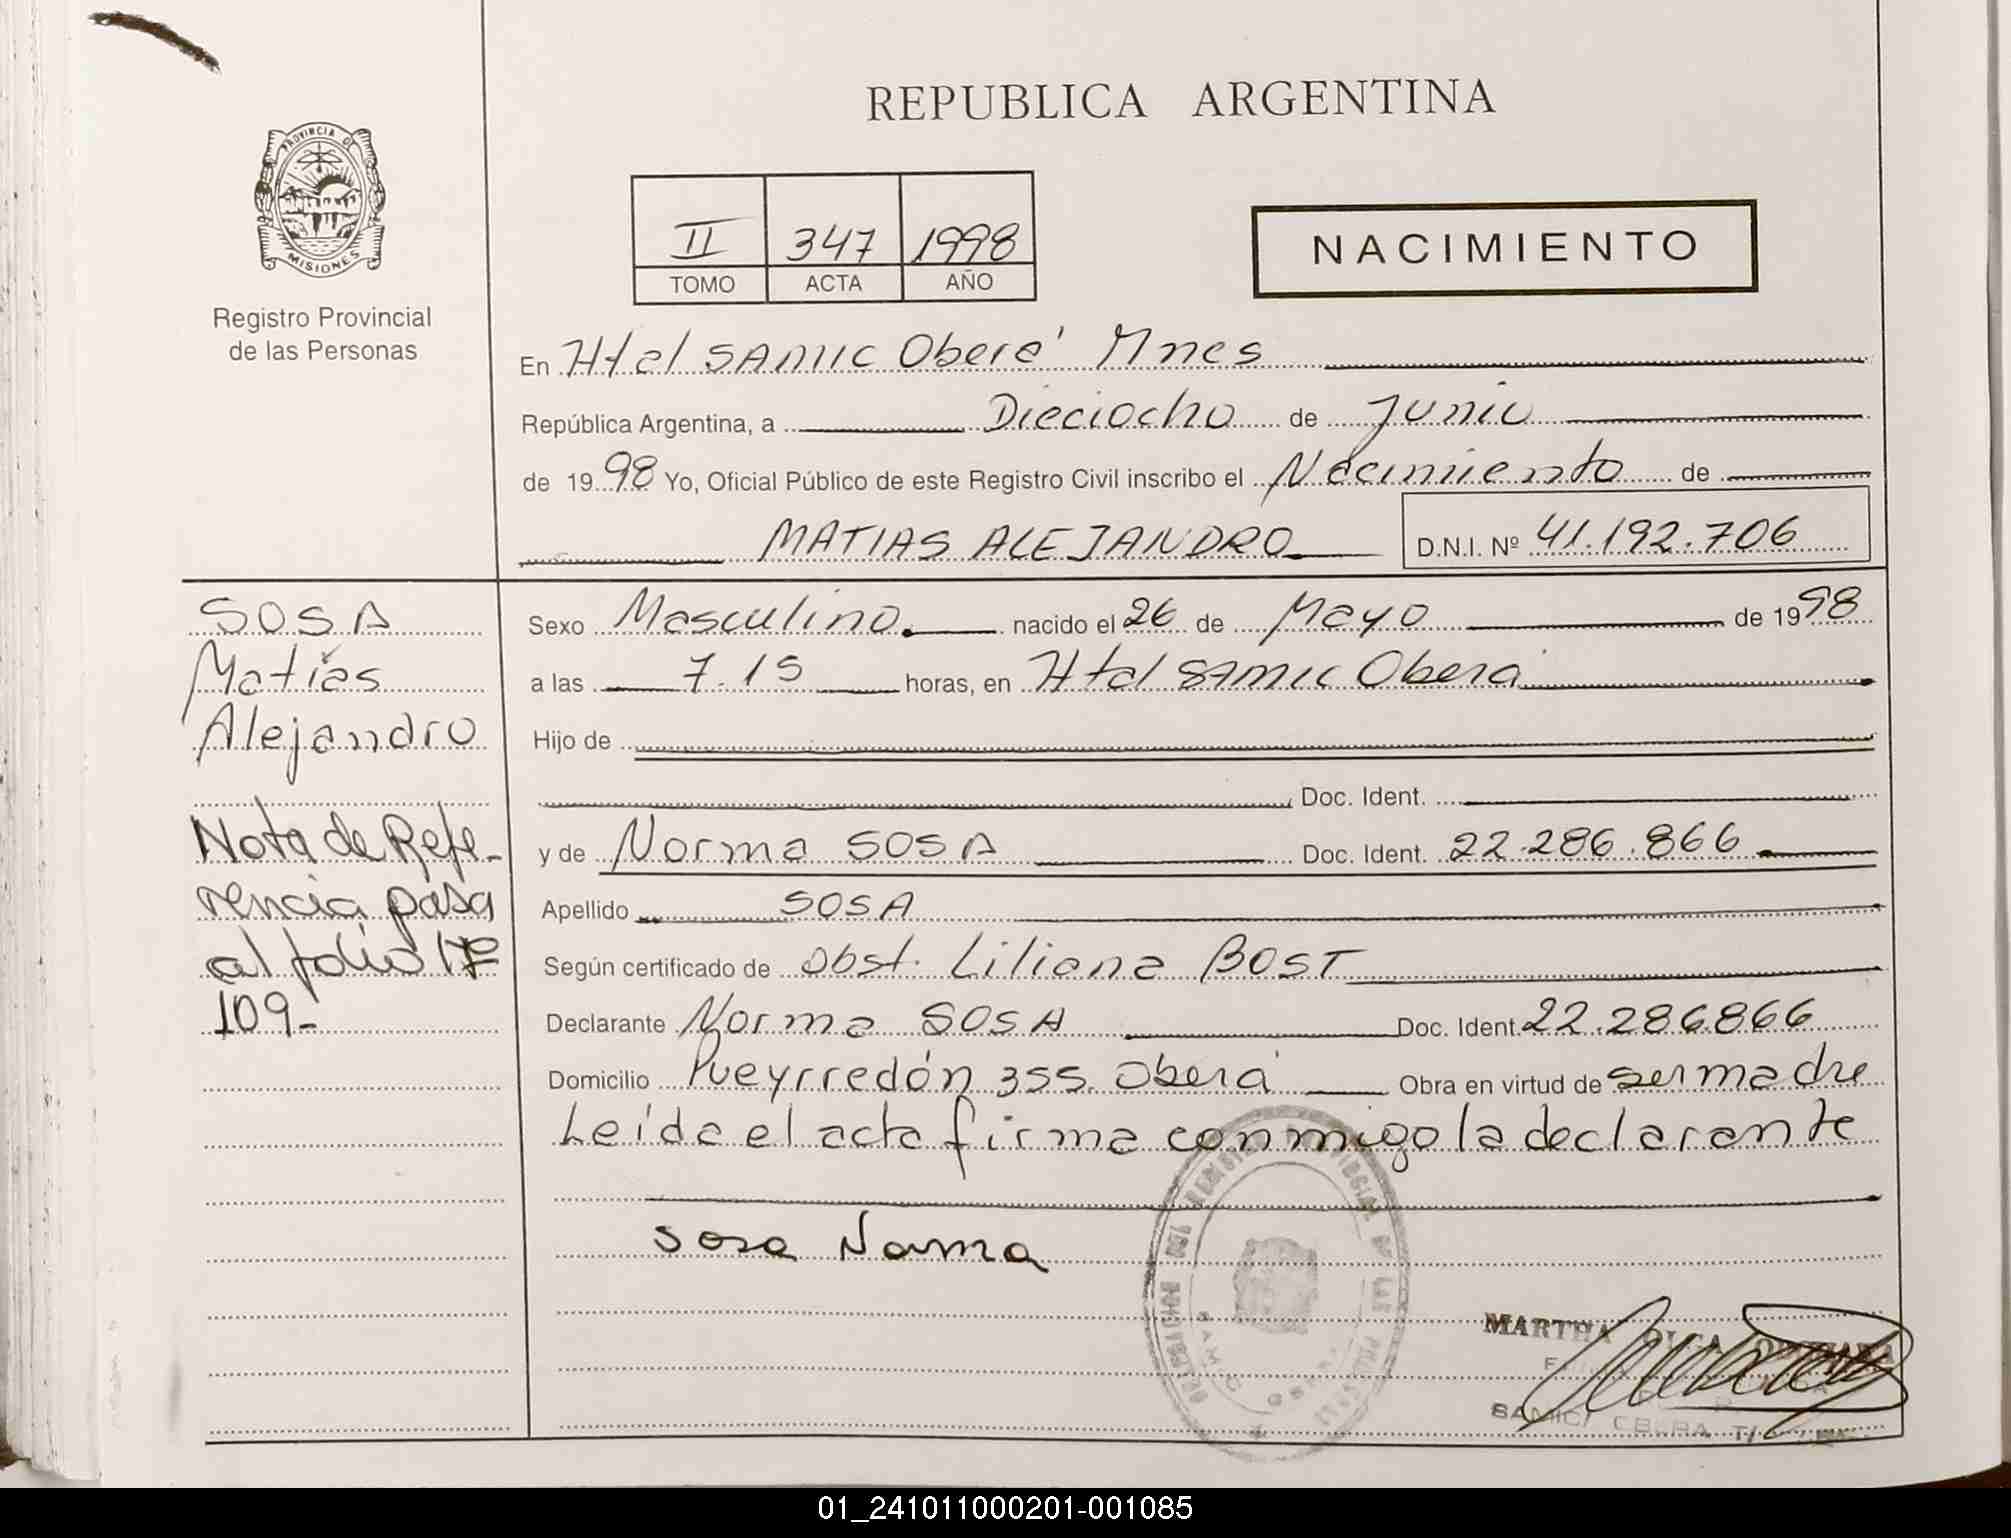 REPUBLICA ARGENTINA
PROVINCIA DE
MISIONES
Registro Provincial
de las Personas
II 347 1998
TOMO ACTA AÑO
NACIMIENTO
En Htal SAMIC Oberá Mnes
República Argentina, a Dieciocho de Junio
de 1998 Yo, Oficial Público de este Registro Civil inscribo el Nacimiento de
MATIAS ALEJANDRO D.N.I. Nº 41.192.706
SOSA
Matías
Alejandro
Nota de Refe-
rencia pasa
al folio Nº
109-
Sexo Masculino. nacido el 26 de Mayo de 1998
a las 7.15 horas, en Htal SAMIC Oberá
Hijo de
Doc. Ident.
y de Norma SOSA Doc. Ident. 22.286.866
Apellido SOSA
Según certificado de Obst. Liliana BOST
Declarante Norma SOSA Doc. Ident. 22.286866
Domicilio Pueyrredón 355. Oberá Obra en virtud de ser madre
Leída el acta firma conmigo la declarante
Sosa Norma
MARTHA OLGA
SAMIC OBERA
01_241011000201-001085